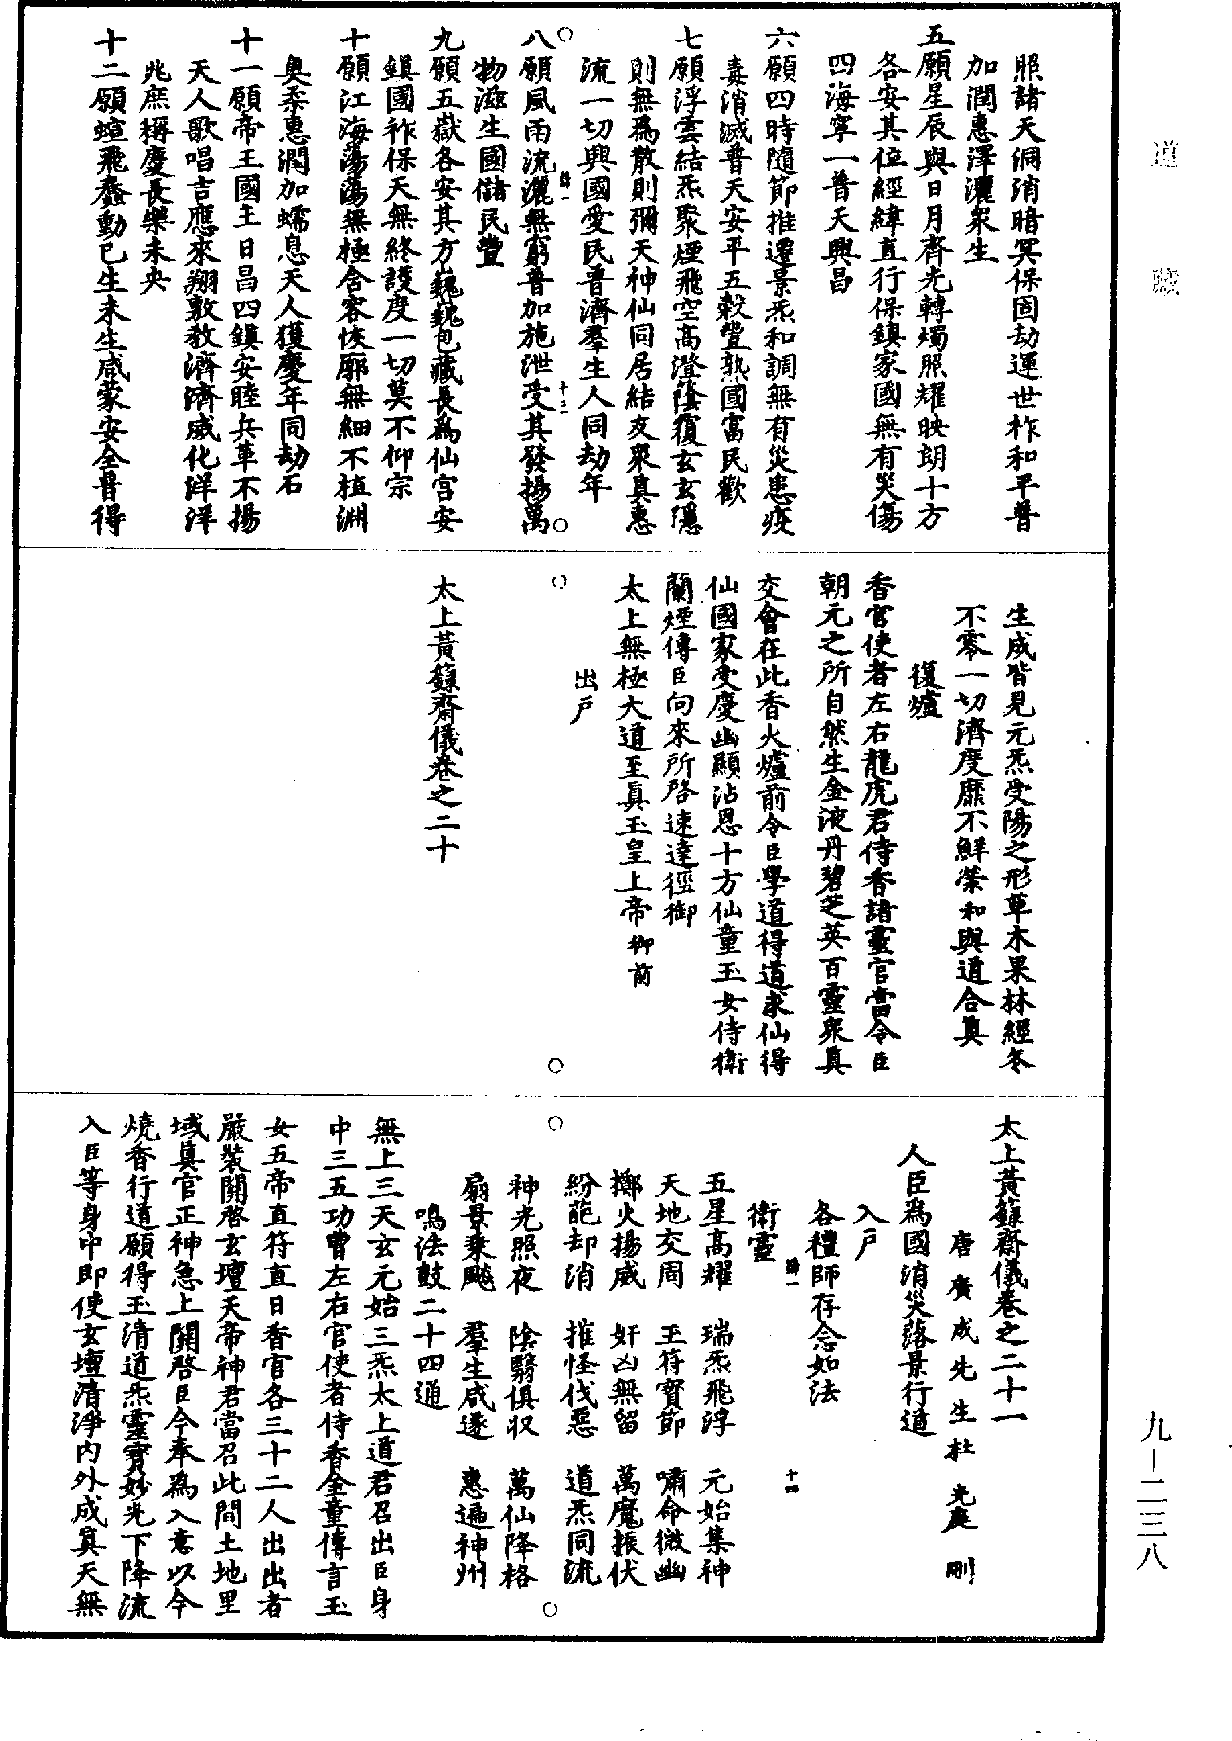 道藏
照諸天洞消暗冥保固劫運世柞和平普
加潤惠澤灑衆生
五願星辰與日月齊光轉燭照耀映朗十方
各安其位經緯直行保鎮家國無有災傷
四海寧一普天興昌
六願四時隨節推遷景炁和調無有災患疫
毒消滅普天安平五穀豐熟國富民歡
七願浮雲結炁聚煙飛空高澄蔭覆玄玄隱
則無為散則彌天神仙同居結友衆真惠
流一切興國愛民普濟羣生人同劫年
八願風雨流灑無窮普加施泄受其發揚萬
物滋生國儲民豐
九願五嶽各安其方巍巍包藏長為仙宮安
鎮國祚保天無終護度一切莫不仰宗
十願江海蕩蕩無極含容恢廓無細不植淵
奧黍惠潤加蠕息天人獲慶年同劫石
十一願帝王國主日昌四鎮安睦兵革不揚
天人歌唱吉應來翔敷教濟濟威化洋洋
兆庶稱慶長樂未央
十二願蝖飛蠢動已生未生咸蒙安全普得
生成皆見元炁受陽之形草木果林經冬
不零一切濟度靡不鮮榮和與道合真
復爐
香官使者左右龍虎君侍香諸靈官當令臣
朝元之所自然生金液丹碧芝英百靈衆真
交會在此香火爐前令臣學道得道求仙得
仙國家受慶幽顯沾恩十方仙童玉女侍衛
蘭煙傳臣向來所啓速達徑御
太上無極大道至真玉皇上帝御前
出戶
太上黃籙齋儀卷之二十
太上黃籙齋儀卷之二十一
唐廣成先生杜光庭刪
人臣為國消災落景行道
入戶
各禮師存念如法
衛靈
五星高耀 瑞炁飛浮 元始集神
天地交周 玉符寶節 嘯命微幽
擲火揚威 奸凶無留 萬魔振伏
紛葩却消 摧怪伐惡 道炁同流
神光照夜 陰翳俱收 萬仙降格
扇景乘飈 羣生咸遂 惠遍神州
鳴法鼓二十四通
無上三天玄元始三炁太上道君召出臣身
中三五功曹左右官使者侍香金童傳言玉
女五帝直符直日香官各三十二人出出者
嚴裝關啓玄壇天帝神君當召此間土地里
域真官正神急上關啓臣今奉為入意以今
燒香行道願得玉清道炁靈寶妙光下降流
入臣等身中即使玄壇清淨內外成真天無
九－二三八